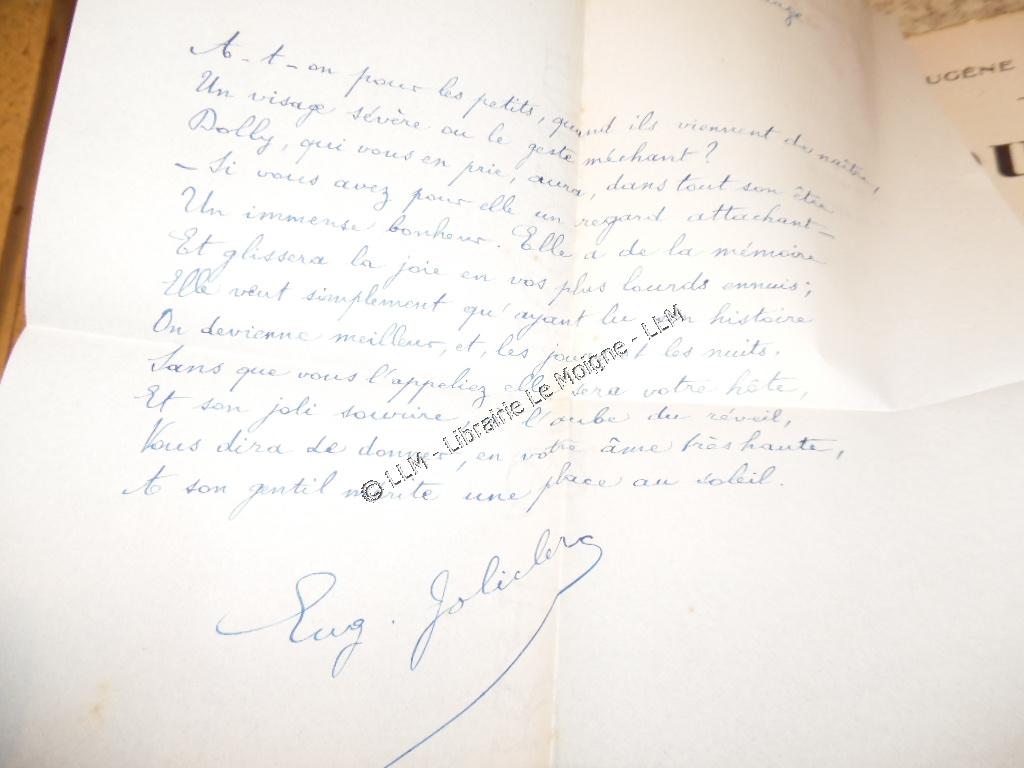 A-t-on pour les petits, quand ils viennent de naître,
Un visage sévère ou le geste méchant?
Dolly, qui vous en prie, aura, dans tout son être
- Si vous avez pour elle un regard attachant -
Un immense bonheur. Elle a de la mémoire
Et glissera la joie en vos plus lourds ennuis;
Elle veut simplement qu'ayant lu son histoire
On devienne meilleur, et, les jours et les nuits.
Sans que vous l'appeliez elle sera votre hôte,
Et son joli sourire l'aube du réveil,
Vous dira de donner, en votre âme très haute,
A son gentil mérite une place au soleil.
Eug. Joliclerc
UGÈNE
U
© LLM - Librairie Le Moigne - LLM